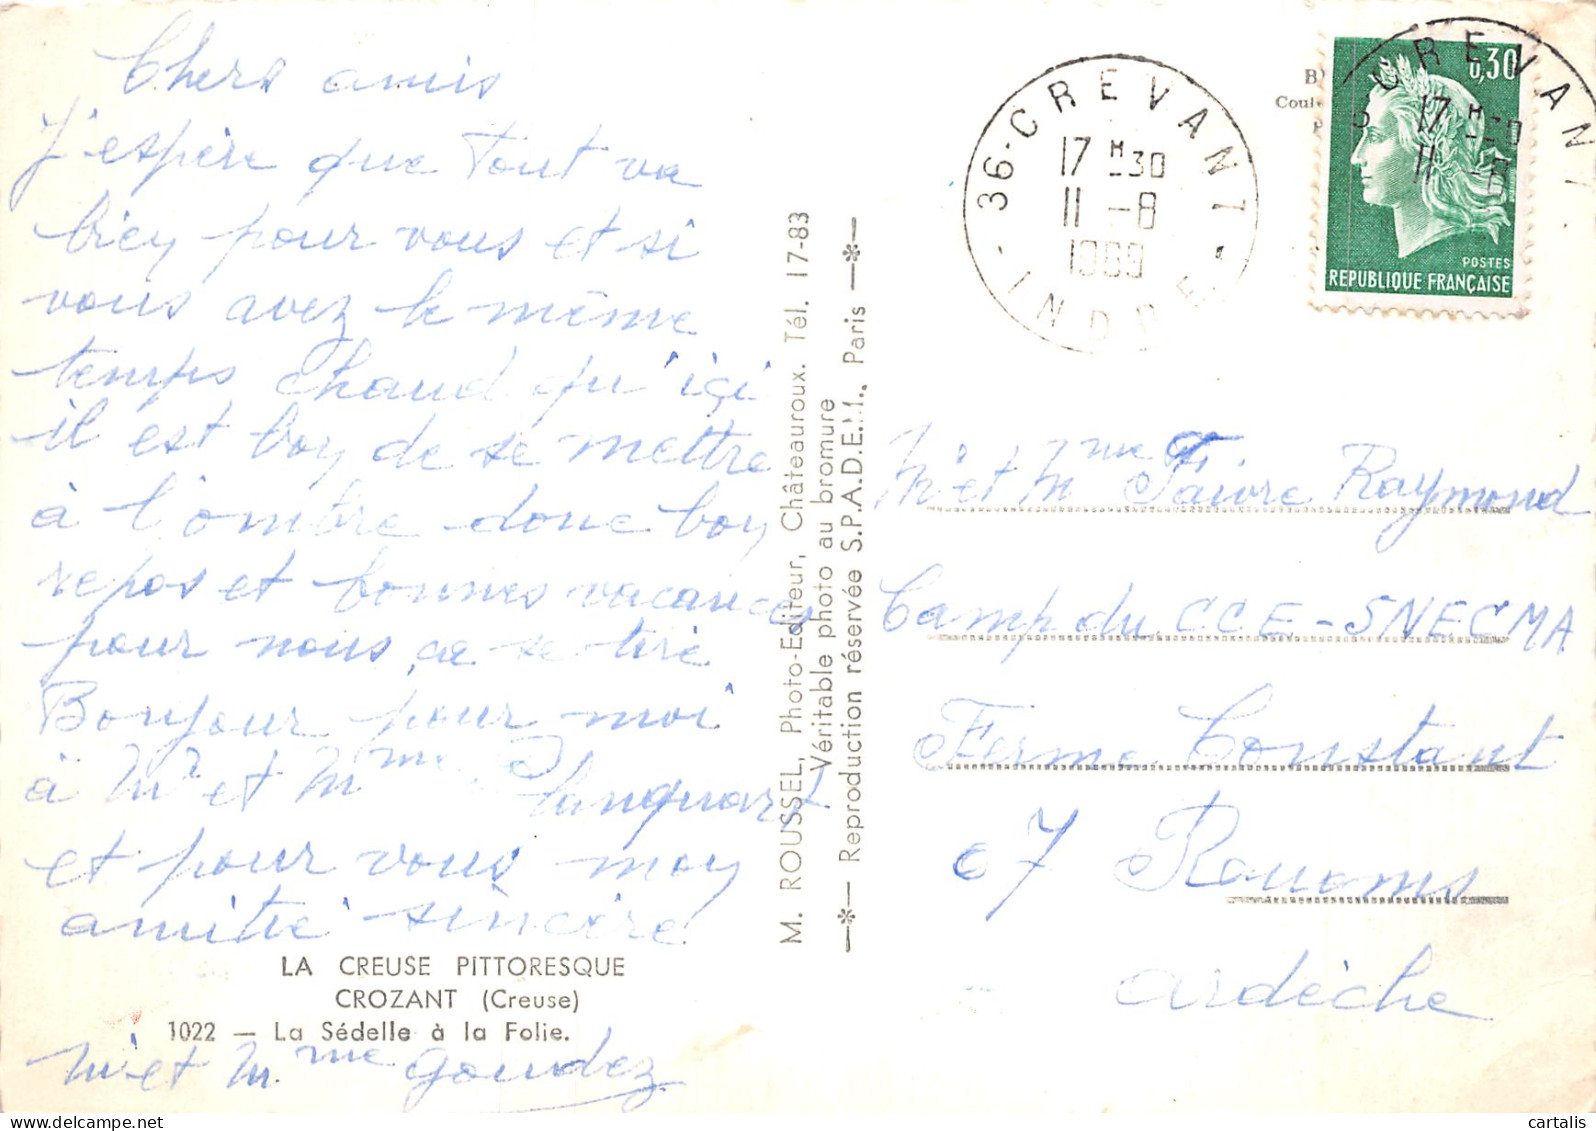 Chers amis
J'espère que tout va
bien pour vous et si
vous avez le même
temps chaud qu'içi
il est bon de se mettre
à l'ombre donc bon
repos et bonnes vacances
pour nous ça se tire
Bonjour pour moi
à Mr et Mme
et pour vous mon
amitié sincère
LA CREUSE PITTORESQUE
CROZANT (Creuse)
1022 — La Sédelle à la Folie.
Mr et Mme Goudez
M. ROUSSEL, Photo-Editeur, Châteauroux. Tél. 17-83
Véritable photo au bromure
—*— Reproduction réservée S.P.A.D.E.M., Paris —*—
36-CREVANT
17 H-30
11 -8
1969
- INDRE -
0,30
POSTES
REPUBLIQUE FRANÇAISE
CREVANT
17 H-30
11 -8
Mr et Mme Faivre Raymond
Camp du C.C.E-SNECMA
Ferme Constant
07 Rouoms
Ardèche
cartalis
www.delcampe.net